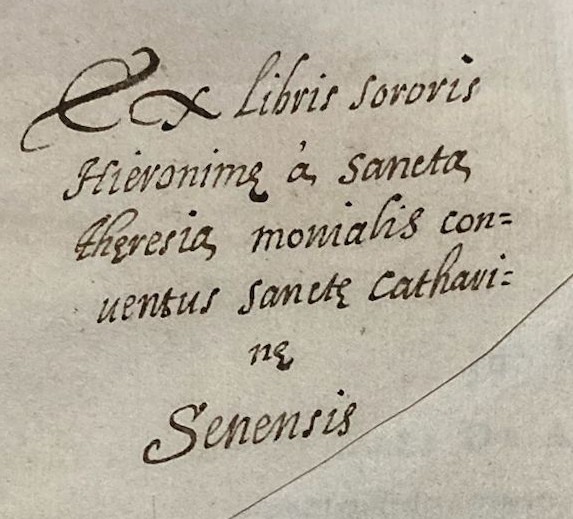 Ex libris sororis
Hieronimę à sancta
thęresia monialis con=
uentus sanctę Cathari=
nę
Senensis